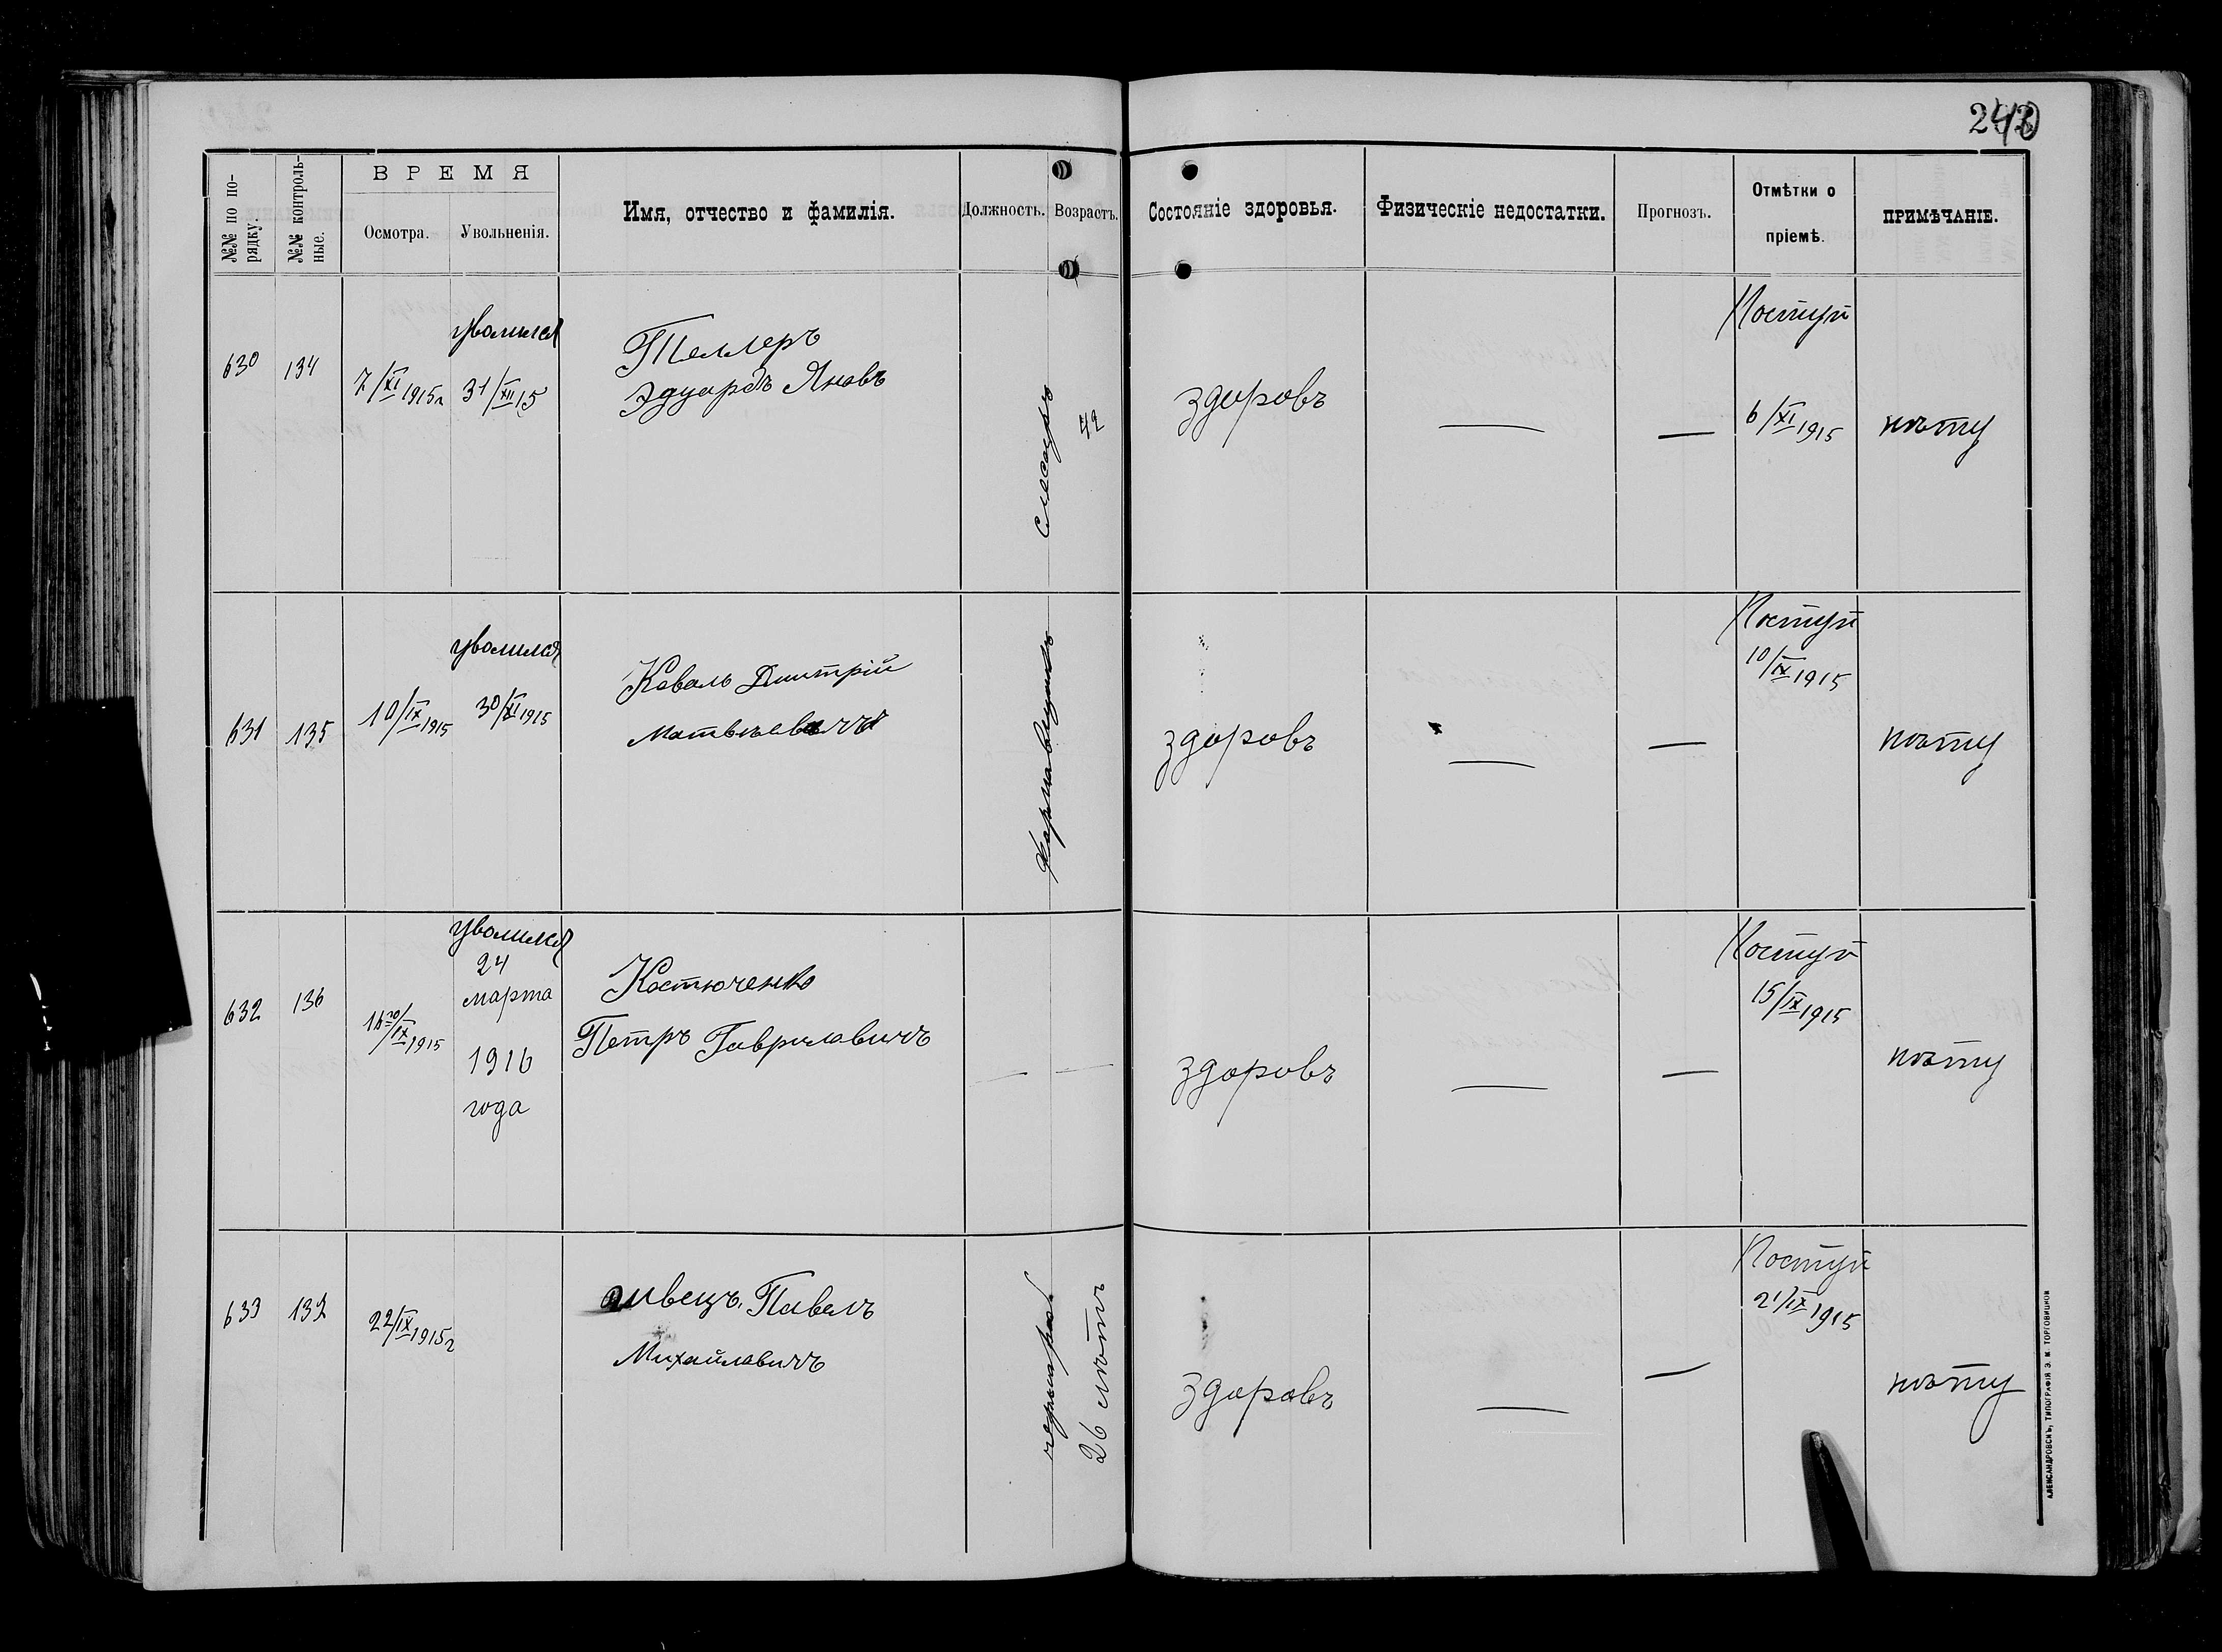 №№ по по-
рядку.
№№ контроль-
ные.
ВРЕМЯ
Осмотра.
Увольненія.
Имя, отчество и фамилія.
Должность.
Возрастъ.
Состояніе здоровья.
Физическіе недостатки.
Прогнозъ.
Отмѣтки о
пріемѣ.
ПРИМѢЧАНІЕ.
630
134
7/XI 1915г
уволился
31/XII 15
Теллеръ
Эдуардъ Яновъ
слесаръ
42
здоровъ
—
—
Поступ
6/XI 1915
нѣту
631
135
10/IX 1915
уволился
30/XI 1915
Коваль Дмитрій
Матвѣевичъ
здоровъ
—
—
Поступ
10/IX 1915
нѣту
632
136
/IX 1915
уволился
24
марта
1916
года
Костюченко
Петръ Гаврилавичъ
—
—
здоровъ
—
—
Поступ
15/IX 1915
нѣту
633
137
22/IX 1915г
Швецъ Павелъ
Михайлавичъ
чернораб
26 лѣтъ
здоровъ
—
—
Поступ
21/IX 1915
нѣту
АЛЕКСАНДРОВСКЪ, ТИПОГРАФІЯ Э. М. ТОРГОВИЦКОЙ